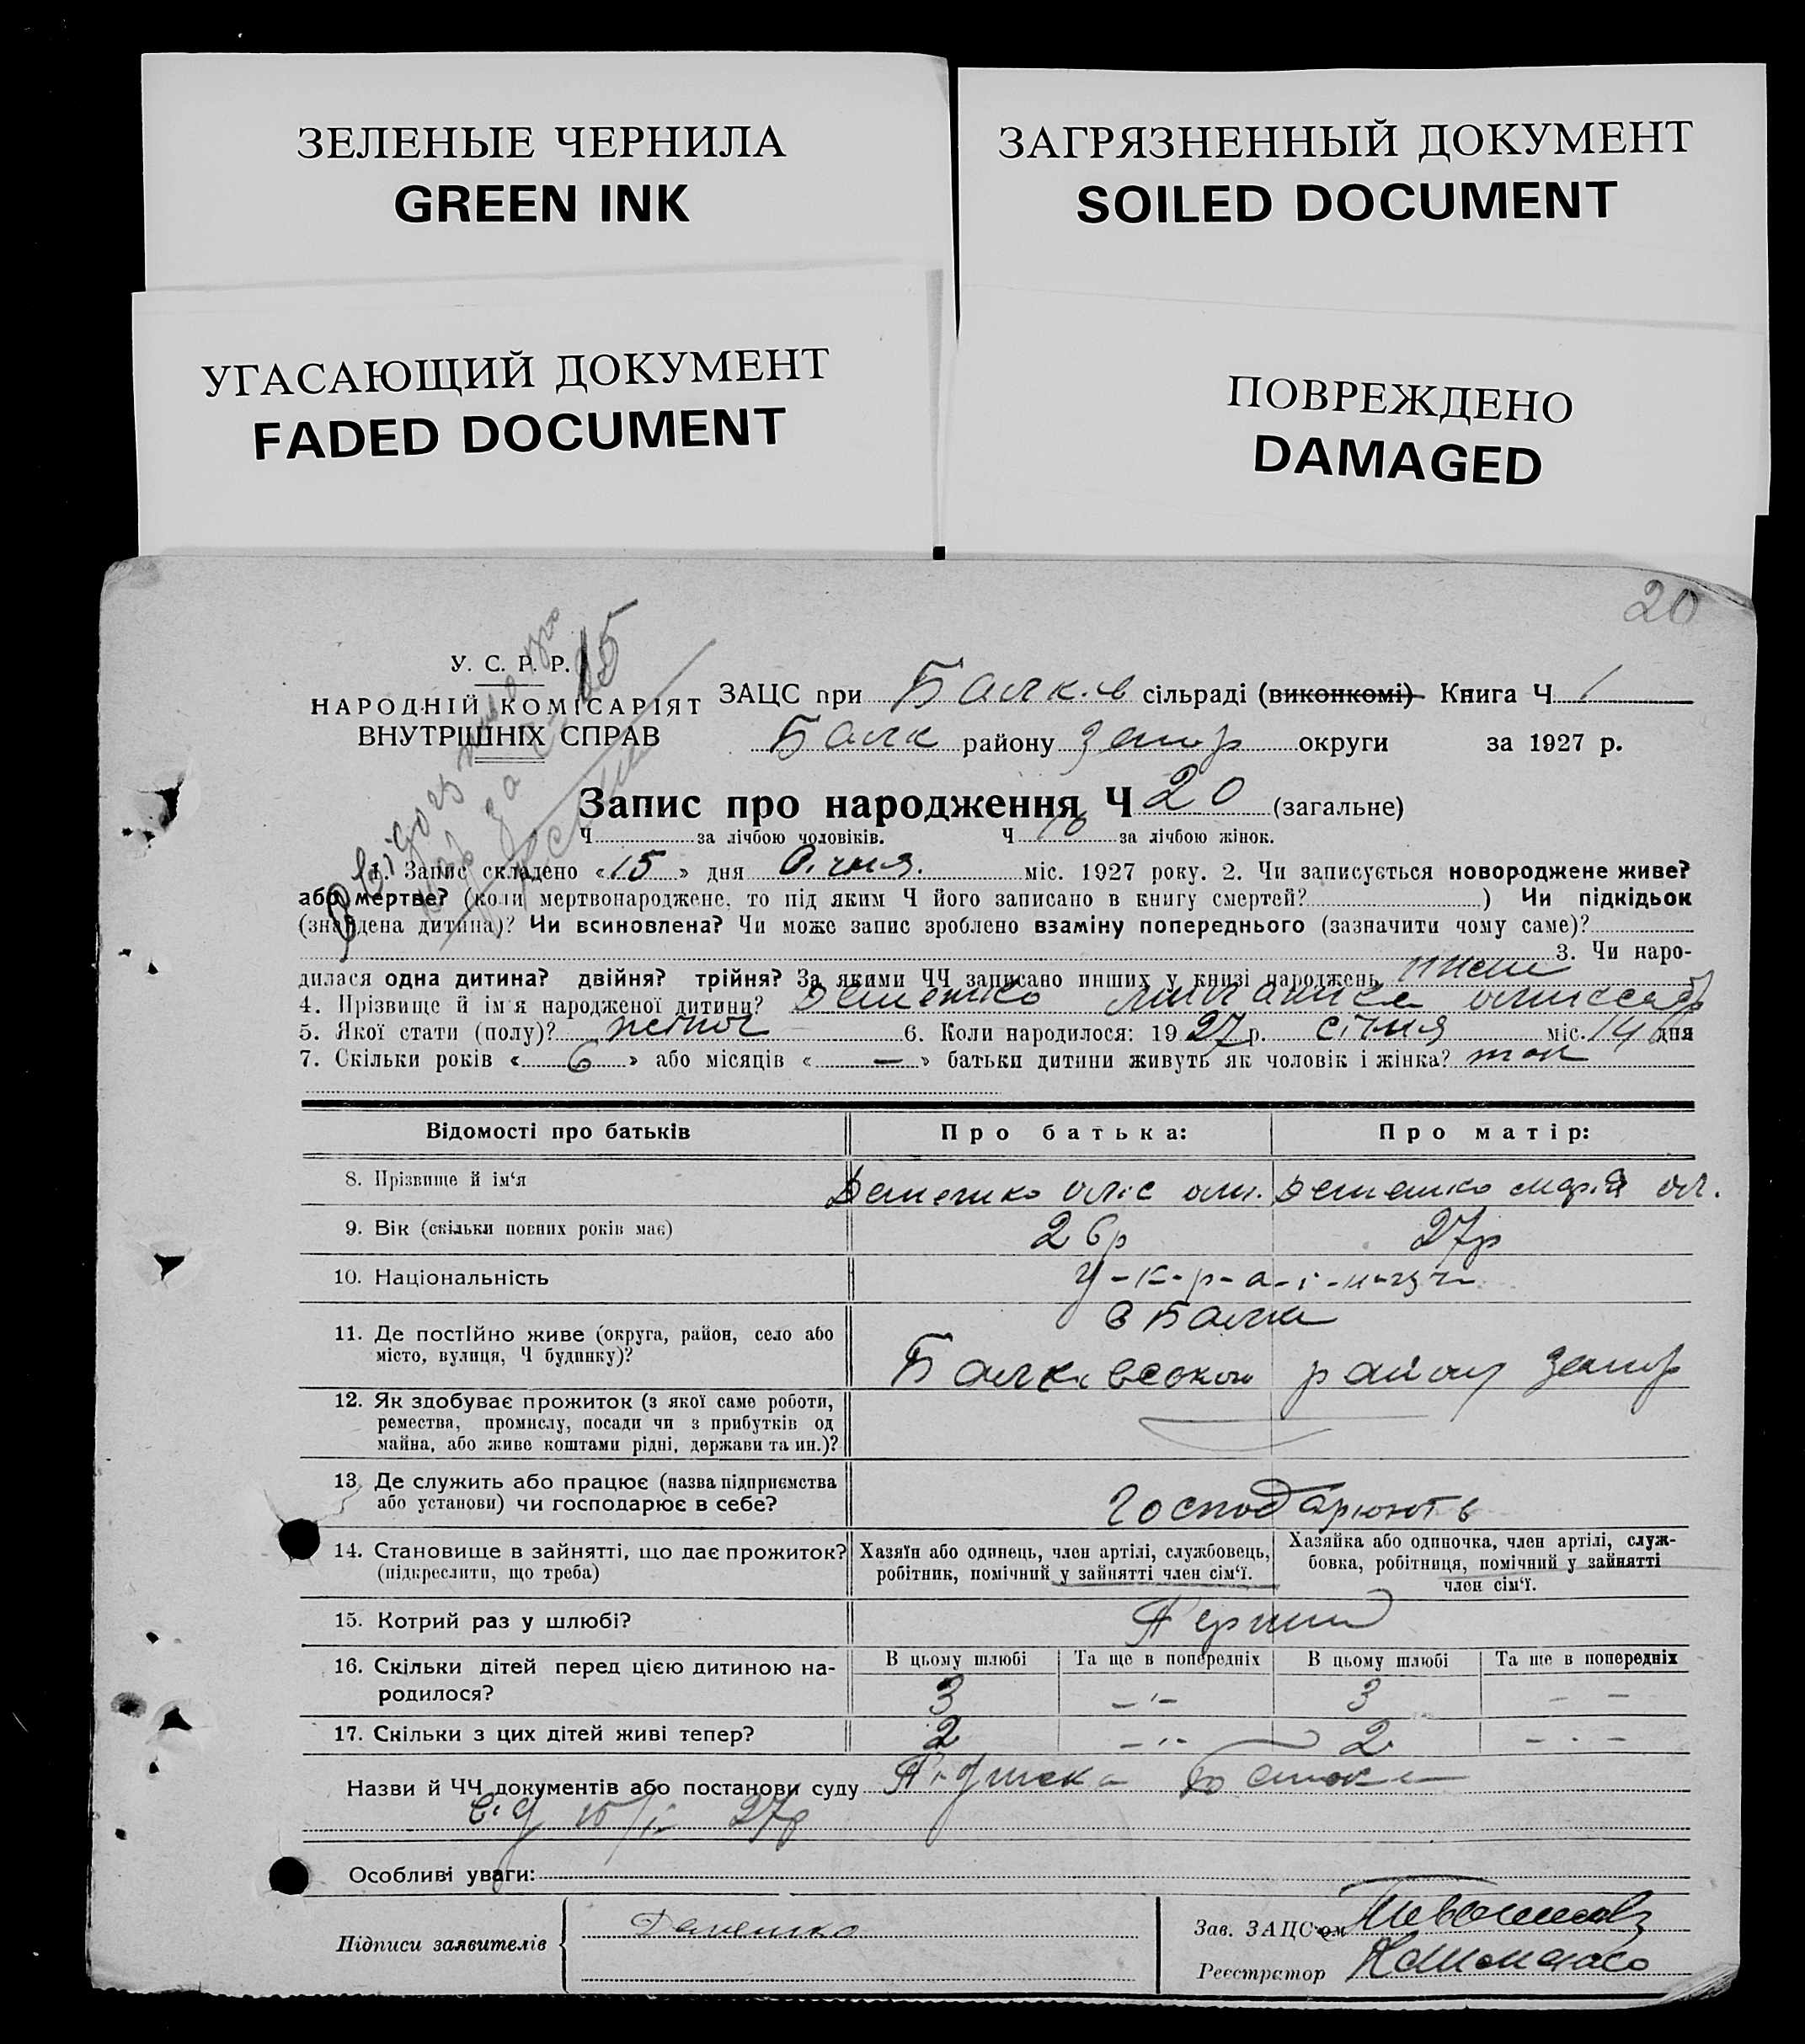 ЗЕЛЕНЫЕ ЧЕРНИЛА
GREEN INK
ЗАГРЯЗНЕННЫЙ ДОКУМЕНТ
SOILED DOCUMENT
УГАСАЮЩИЙ ДОКУМЕНТ
FADED DOCUMENT
ПОВРЕЖДЕНО
DAMAGED
20
15
У. С. Р. Р.
НАРОДНІЙ КОМІСАРІЯТ
ВНУТРІШНІХ СПРАВ
ЗАЦС при Балк.ів сільраді (виконкомі) Книга Ч 1
Балк району Запор округи за 1927 р.
Запис про народження Ч 20 (загальне)
Ч за лічбою чоловіків. Ч 10 за лічбою жінок.
1. Запис складено «15» дня Січня. міс. 1927 року. 2. Чи записується новороджене живе?
або мертве? (коли мертвонароджене, то під яким Ч його записано в книгу смертей? ) Чи підкідьок
(знайдена дитина)? Чи всиновлена? Чи може запис зроблено взаміну попереднього (зазначити чому саме)?
3. Чи наро-
дилася одна дитина? двійня? трійня? За якими ЧЧ записано инших у книзі народжень
4. Прізвище й ім'я народженої дитини?
5. Якої стати (полу)? жіноч 6. Коли народилося: 19 27 р. січня міс. 14 дня
7. Скільки років « 6 » або місяців « — » батьки дитини живуть як чоловік і жінка? так
Відомості про батьків Про батька: Про матір:
8. Прізвище й ім'я
9. Вік (скільки повних років має) 26р 27р
10. Національність у-к-р-а-ї-н-ці
11. Де постійно живе (округа, район, село або
місто, вулиця, Ч будинку)?
с Балки
Балківського району Запор
12. Як здобуває прожиток (з якої саме роботи,
ремества, промислу, посади чи з прибутків од
майна, або живе коштами рідні, держави та ин.)?
13. Де служить або працює (назва підприємства
або установи) чи господарює в себе?
Господарюють
14. Становище в зайнятті, що дає прожиток?
(підкреслити, що треба)
Хазяїн або одинець, член артілі, службовець,
робітник, помічний у зайнятті член сім'ї.
Хазяйка або одиночка, член артілі, служ-
бовка, робітниця, помічний у зайнятті
член сім'ї.
15. Котрий раз у шлюбі? Перший
16. Скільки дітей перед цією дитиною на-
родилося?
В цьому шлюбі Та ще в попередніх В цьому шлюбі Та ще в попередніх
3 -"- 3 - -
17. Скільки з цих дітей живі тепер? 2 -"- 2 - · -
Назви й ЧЧ документів або постанови суду Підписка батька
від 15/I 27р
Особливі уваги:
Підписи заявителів
Зав. ЗАЦСом
Реєстратор